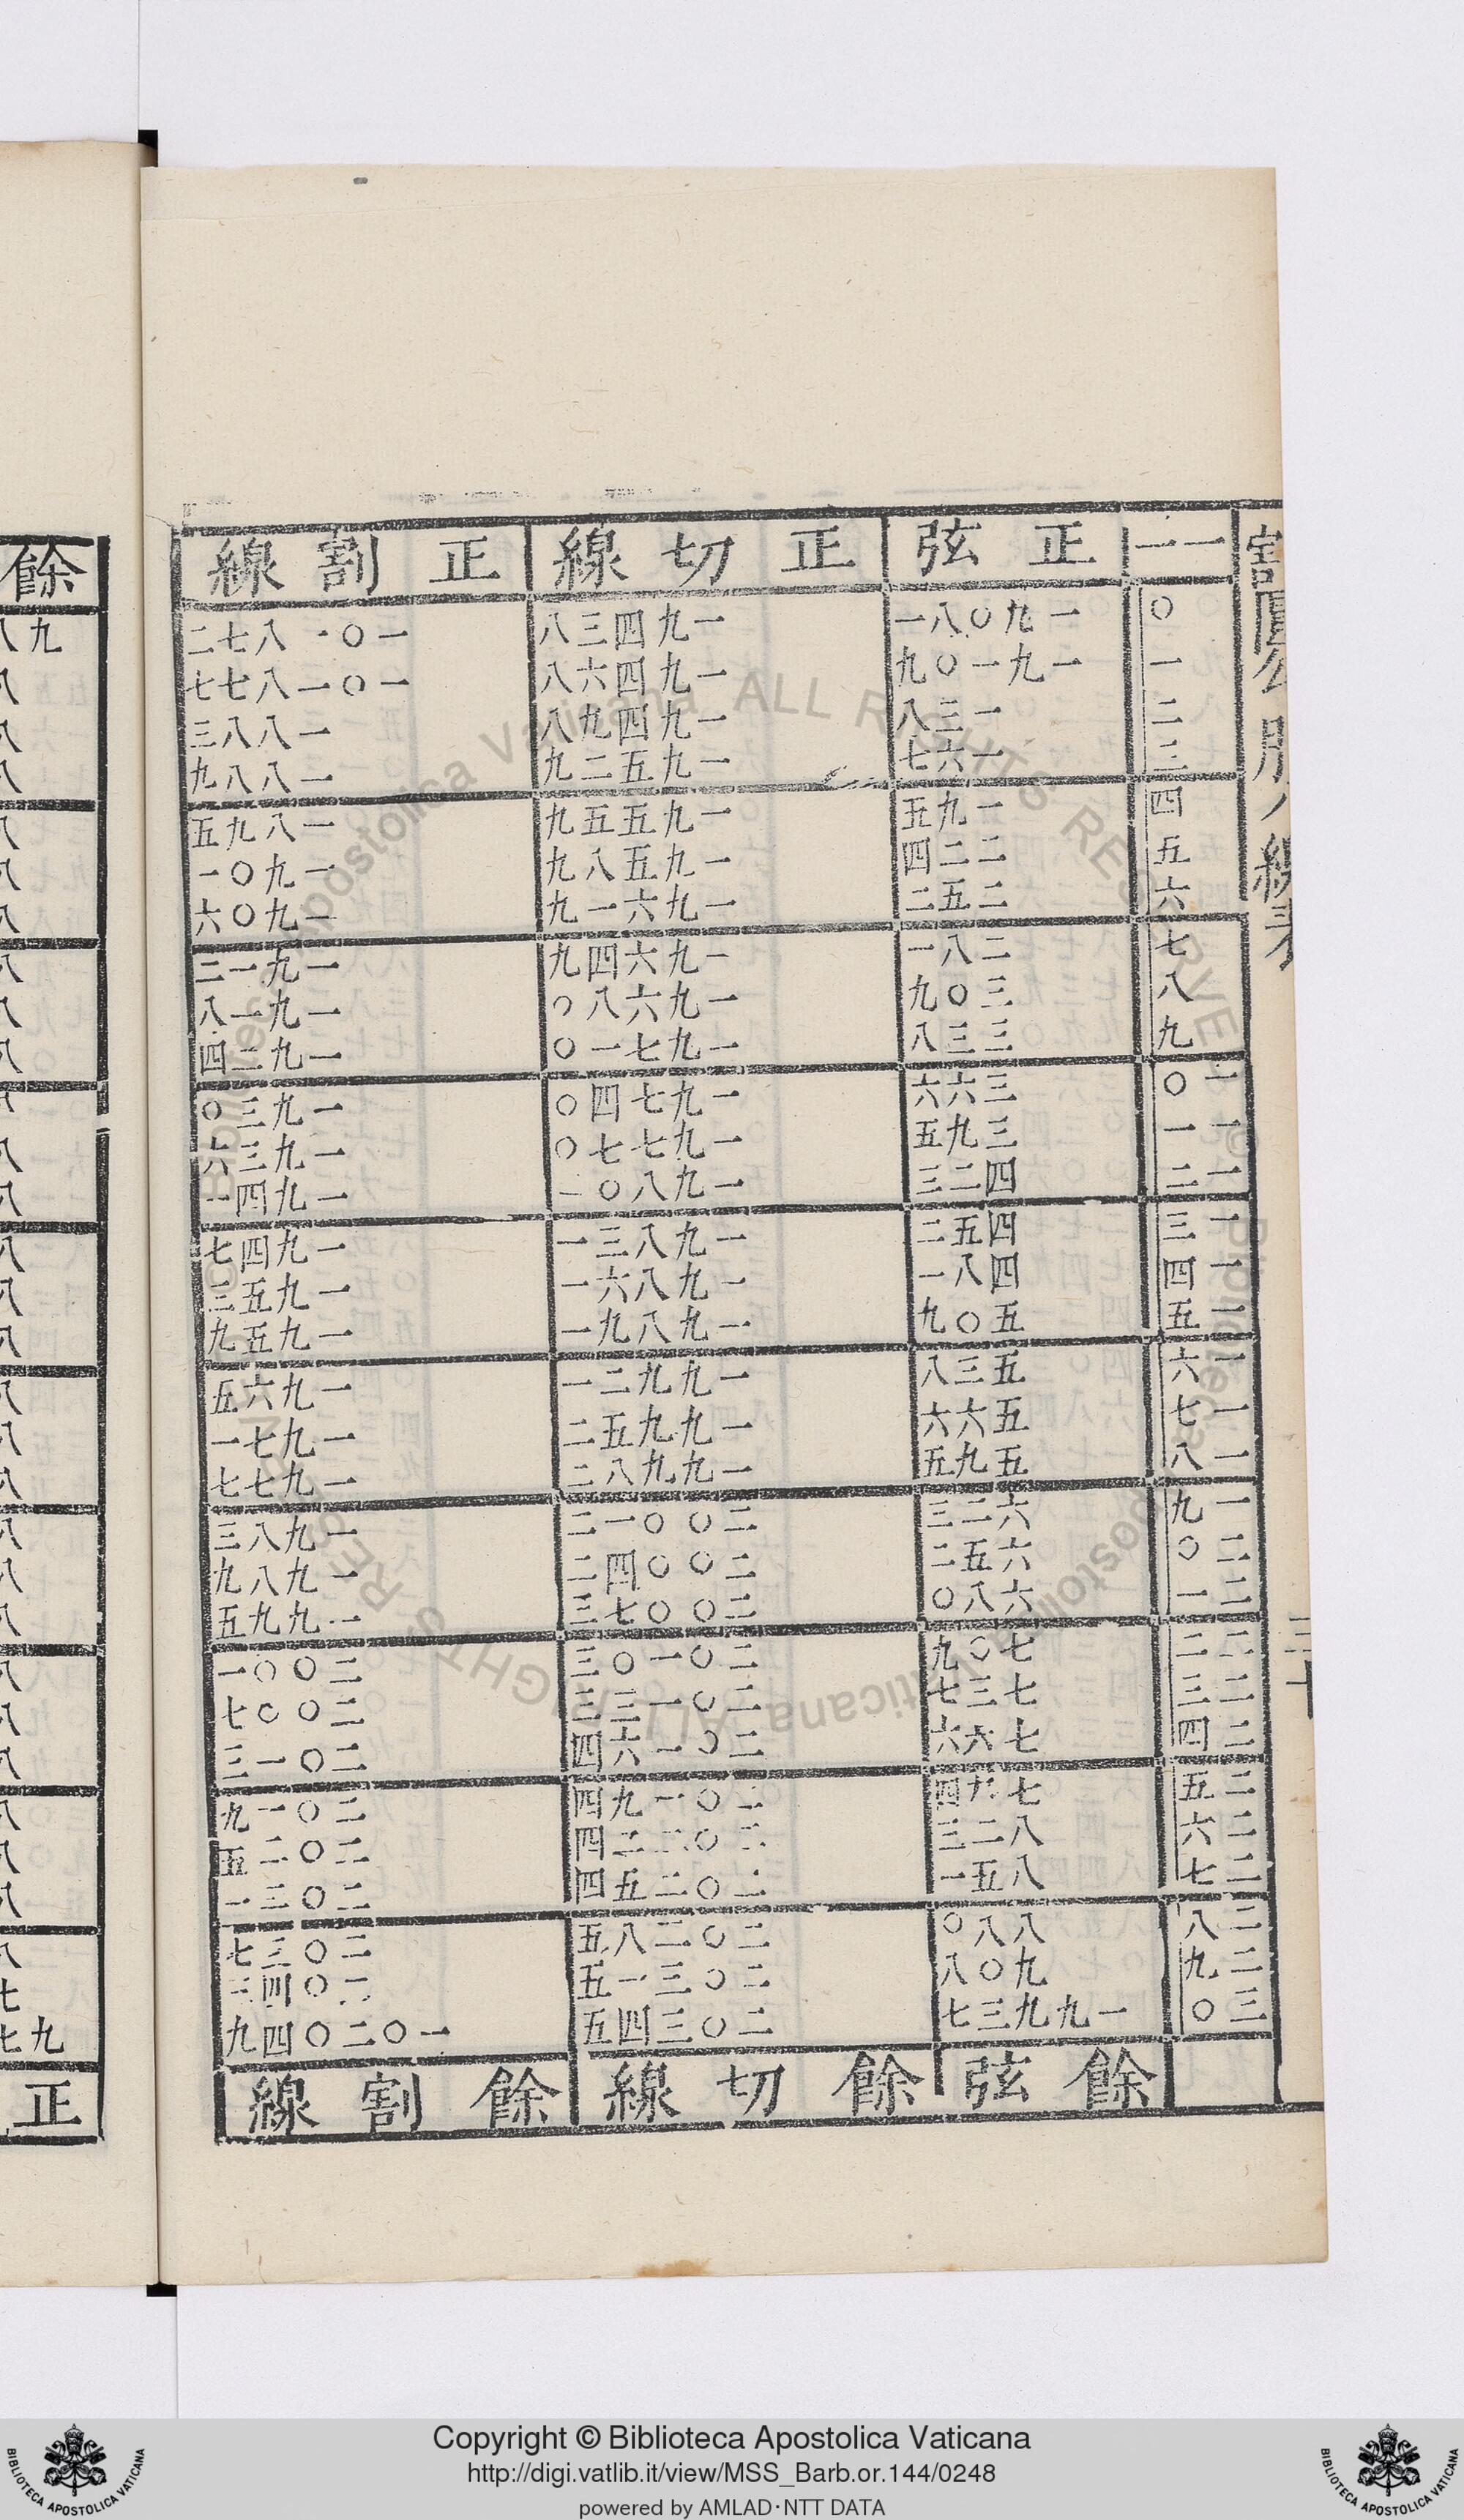 一一 正弦 正切線 正割線
〇 一九〇八一 一九四三八 一〇一八七二
一 一九一〇九 一九四六八 一〇一八七七
二 一三八 一九四九八 一八八三
三 一六七 一九五二九 一八八九
四 一九五 一九五五九 一八九五
五 二二四 一九五八九 一九〇一
六 二五二 一九六一九 一九〇六
七 二八一 一九六四九 一九一二
八 三〇九 一九六八〇 一九一八
九 三三八 一九七一〇 一九二四
一〇 三六六 一九七四〇 一九三〇
一一 三九五 一九七七〇 一九三六
一二 四二三 一九八〇一 一九四一
一三 四五二 一九八三一 一九四七
一四 四八一 一九八六一 一九五三
一五 五〇九 一九八九一 一九五九
一六 五三八 一九九二一 一九六五
一七 五六六 一九九五二 一九七一
一八 五九五 一九九八二 一九七七
一九 六二三 二〇〇一二 一九八三
二〇 六五二 二〇〇四二 一九八九
二一 六八〇 二〇〇七三 一九九五
二二 七〇九 二〇一〇三 二〇〇一
二三 七三七 二〇一三三 二〇〇七
二四 七六六 二〇一六四 二〇一三
二五 七九四 二〇一九四 二〇一九
二六 八二三 二〇二二四 二〇二五
二七 八五一 二〇二五四 二〇三一
二八 八八〇 二〇二八五 二〇三七
二九 九〇八 二〇三一五 二〇四三
三〇 一九九三七 二〇三四五 一〇二〇四九
餘弦 餘切線 餘割線
餘
正
Copyright © Biblioteca Apostolica Vaticana
http://digi.vatlib.it/view/MSS_Barb.or.144/0248
powered by AMLAD·NTT DATA
BIBLIOTECA APOSTOLICA VATICANA
BIBLIOTECA APOSTOLICA VATICANA